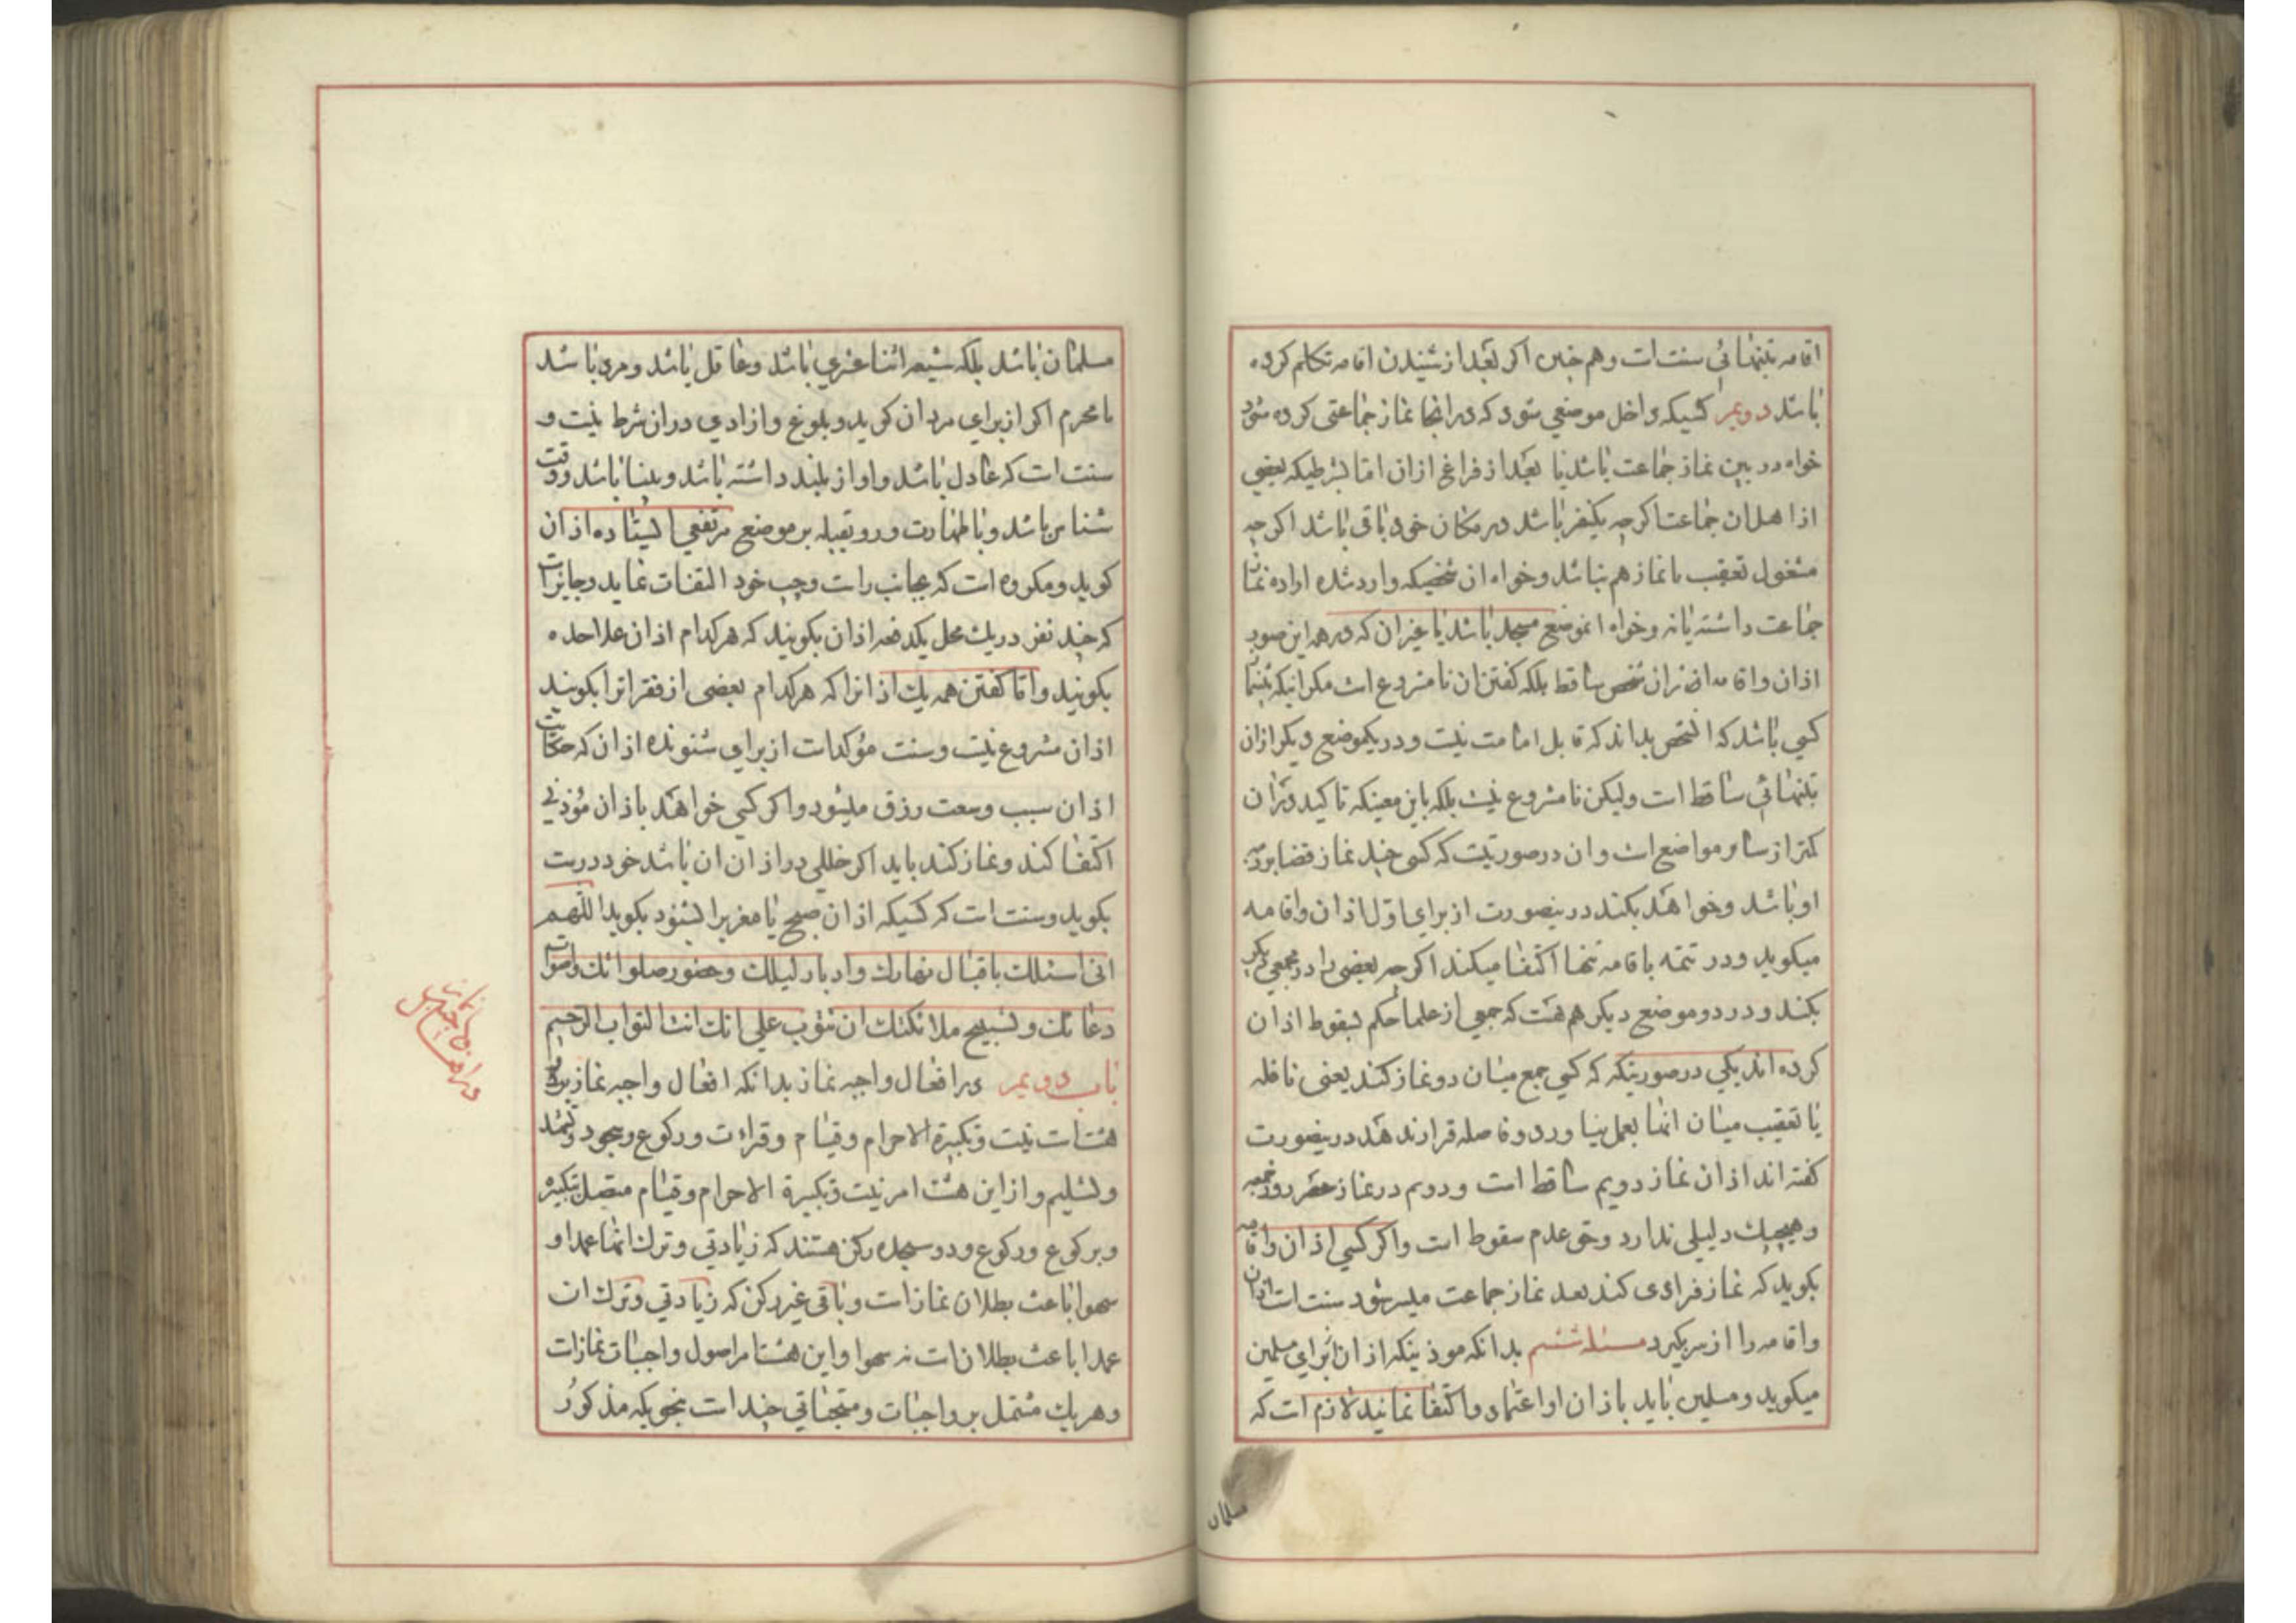 اقامه بتنهائی سنت است و هم چنین اکر بعد از شنیدن اقامه تکلم کرده
باشد دویم کسیکه داخل موضعی شود که در انجا نماز جماعتی کرده شود
خواه در بین نماز جماعت باشد یا بعد از فراغ از ان اما بشرطیکه بعضی
از اهل ان جماعت اکرچه یکنفر باشد در مکان خود باقی باشد اکرچه
مشغول تعقیب یا نماز هم نباشد و خواه ان شخصیکه وارد شده اراده نماز
جماعت داشته یا نه و خواه انموضع مسجد باشد یا غیر ان که در همه این صور
اذان و اقامه از ان شخص ساقط بلکه کفتن ان نامشروع است مکر اینکه
کسی باشد که انشخص بداند که قابل امامت نیست و در یکموضع دیکر اذان
بتنهائی ساقط است ولیکن نامشروع نیست بلکه باین معنیکه تاکید در ان
کمتر از سایر مواضع است و ان در صورتیست که کسی چند نماز قضا بر ذمه
او باشد و خواهد بکند در ینصورت از برای اول اذان و اقامه
میکوید و در تتمه باقامه تنها اکتفا میکند اکرچه بعضی را در مجمعی دیکر
بکند و در دو موضع دیکر هم هست که جمعی از علما حکم بسقوط اذان
کرده اند یکی در صورتیکه که کسی جمع میان دو نماز کند یعنی نافله
یا تعقیب میان انها بعمل نیاورد و فاصله قرار ندهد در ینصورت
کفته اند اذان نماز دویم ساقط است و دوم در نماز عصر روز جمعه
و هیچیک دلیلی ندارد و حق عدم سقوط است و اکر کسی اذان و اقامه
بکوید که نماز فرادی کند بعد نماز جماعت میسر شود سنت است اذان
و اقامه را از سر بکیرد مسئله ششم بدانکه موذنیکه اذان برای مسلمین
میکوید و مسلمین باید باذان او اعتماد و اکتفا نمایند لازم است که
مسلمان
مسلمان باشد بلکه شیعه اثنا عشری باشد و عاقل باشد و مرد باشد
یا محرم اکر از برای مردان کوید و بلوغ و ازادی در ان شرط نیست و
سنت است که عادل باشد و اواز بلند داشته باشد و بینا باشد و وقت
شناس باشد و با طهارت و رو بقبله بر موضع مرتفعی ایستاده اذان
کوید و مکروه است که بجانب راست و چپ خود التفات نماید و جایز است
که چند نفر در یک محل یکدفعه اذان بکویند که هر کدام اذان علاحده
بکویند و اما کفتن همه یک اذانرا که هر کدام بعضی از فقراترا بکویند
اذان مشروع نیست و سنت مؤکد است از برای شنونده اذان که حکایت
اذان سبب وسعت رزق میشود و اکر کسی خواهد باذان مؤذنی
اکتفا کند و نماز کند باید اکر خللی در اذان ان باشد خود درست
بکوید و سنت است که کسیکه اذان صبح یا مغربرا بشنود بکوید اللهم
انی اسئلک باقبال نهارک و ادبار لیلک و حضور صلواتک و اصوات
دعائک و تسبیح ملائکتک ان تتوب علی انک انت التواب الرحیم
باب دویم در افعال واجبه نماز بدانکه افعال واجبه نماز
هشت است نیت و تکبیرة الاحرام و قیام و قراءت و رکوع و سجود و تشهد
و تسلیم و از این هشت امر نیت و تکبیرة الاحرام و قیام متصل بتکبیره
و برکوع و رکوع و دو سجده رکن هستند که زیادتی و ترک انها عمدا و
سهوا باعث بطلان نماز است و باقی غیر رکن که زیادتی و ترک ان
عمدا باعث بطلان است نه سهوا و این هشت امر اصول واجبات نماز است
و هر یک مشتمل بر واجبات و مستحباتی چند است بنحویکه مذکور